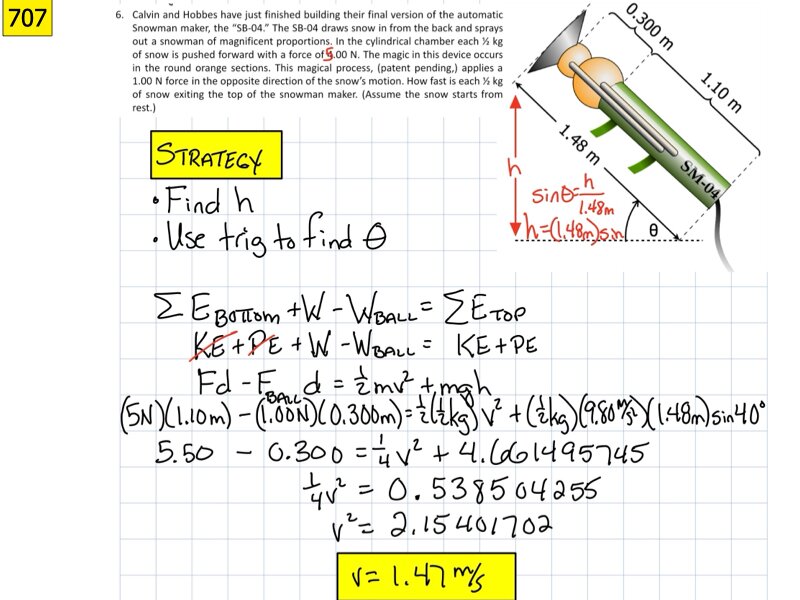 707
6. Calvin and Hobbes have just finished building their final version of the automatic
Snowman maker, the "SB-04." The SB-04 draws snow in from the back and sprays
out a snowman of magnificent proportions. In the cylindrical chamber each ½ kg
of snow is pushed forward with a force of 5.00 N. The magic in this device occurs
in the round orange sections. This magical process, (patent pending,) applies a
1.00 N force in the opposite direction of the snow's motion. How fast is each ½ kg
of snow exiting the top of the snowman maker. (Assume the snow starts from
rest.)
0.300 m
1.10 m
1.48 m
SM-04
h
sinθ = h/1.48m
h=(1.48m)sin
θ
STRATEGY
• Find h
• Use trig to find θ
ΣE BOTTOM + W - W BALL = ΣE TOP
KE + PE + W - W BALL = KE + PE
Fd - F BALL d = ½mv² + mgh
(5N)(1.10m) - (1.00N)(0.300m) = ½(½kg)v² + (½kg)(9.80 m/s²)(1.48m)sin40°
5.50 - 0.300 = ¼v² + 4.661495745
¼v² = 0.538504255
v² = 2.15401702
v = 1.47 m/s